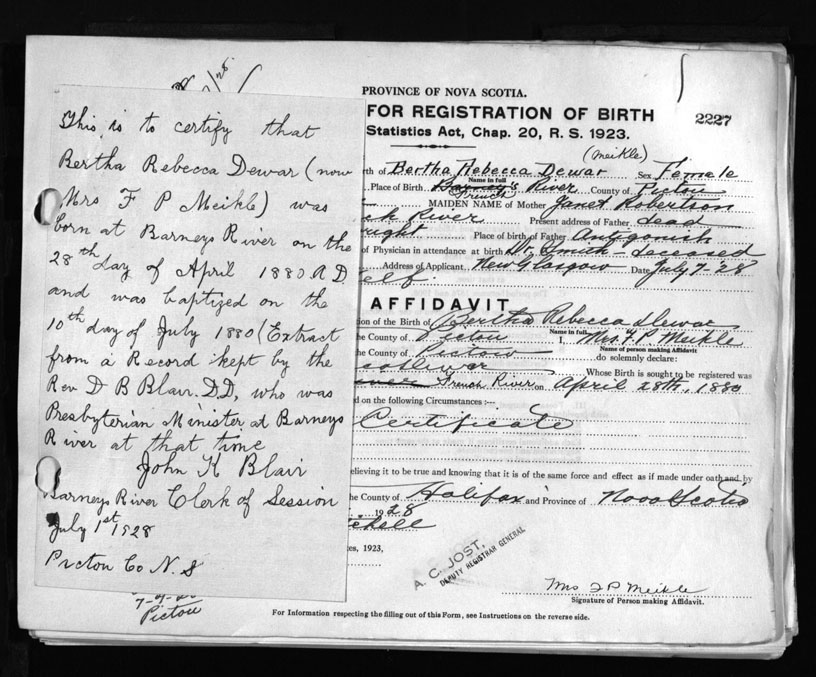 This is to certify that
Bertha Rebecca Dewar (now
Mrs F P Meikle) was
born at Barneys River on the
28th day of April 1880 A.D.
and was baptized on the
10th day of July 1880 (Extract
from a Record kept by the
Rev D B Blair. D.D, who was
Presbyterian Minister at Barneys
River at that time
John K Blair
Barneys River Clerk of Session
July 1st 1928
Pictou Co N.S
Pictou
PROVINCE OF NOVA SCOTIA.
FOR REGISTRATION OF BIRTH
2227
Statistics Act, Chap. 20, R. S. 1923.
(Meikle)
rth of Bertha Rebecca Dewar Sex Female
Name in full
Place of Birth Barney's River County of Pictou
French
MAIDEN NAME of Mother Janet Robertson
ck River Present address of Father dead
right Place of birth of Father Antigonish
of Physician in attendance at birth Dr. Smith - deceased
Address of Applicant New Glasgow Date July 7-28
elf
AFFIDAVIT
ion of the Birth of Bertha Rebecca Dewar
Name in full
he County of Pictou I, Mrs. F. P. Meikle
Name of person making Affidavit
he County of Pictou do solemnly declare:
Whose Birth is sought to be registered was
French River on April 28th, 1880
d on the following Circumstances :—
Certificate
elieving it to be true and knowing that it is of the same force and effect as if made under oath and by
he County of Halifax and Province of Nova Scotia
1928
es, 1923,
A. C. JOST,
DEPUTY REGISTRAR GENERAL
Mrs F P Meikle
Signature of Person making Affidavit.
For Information respecting the filling out of this Form, see Instructions on the reverse side.